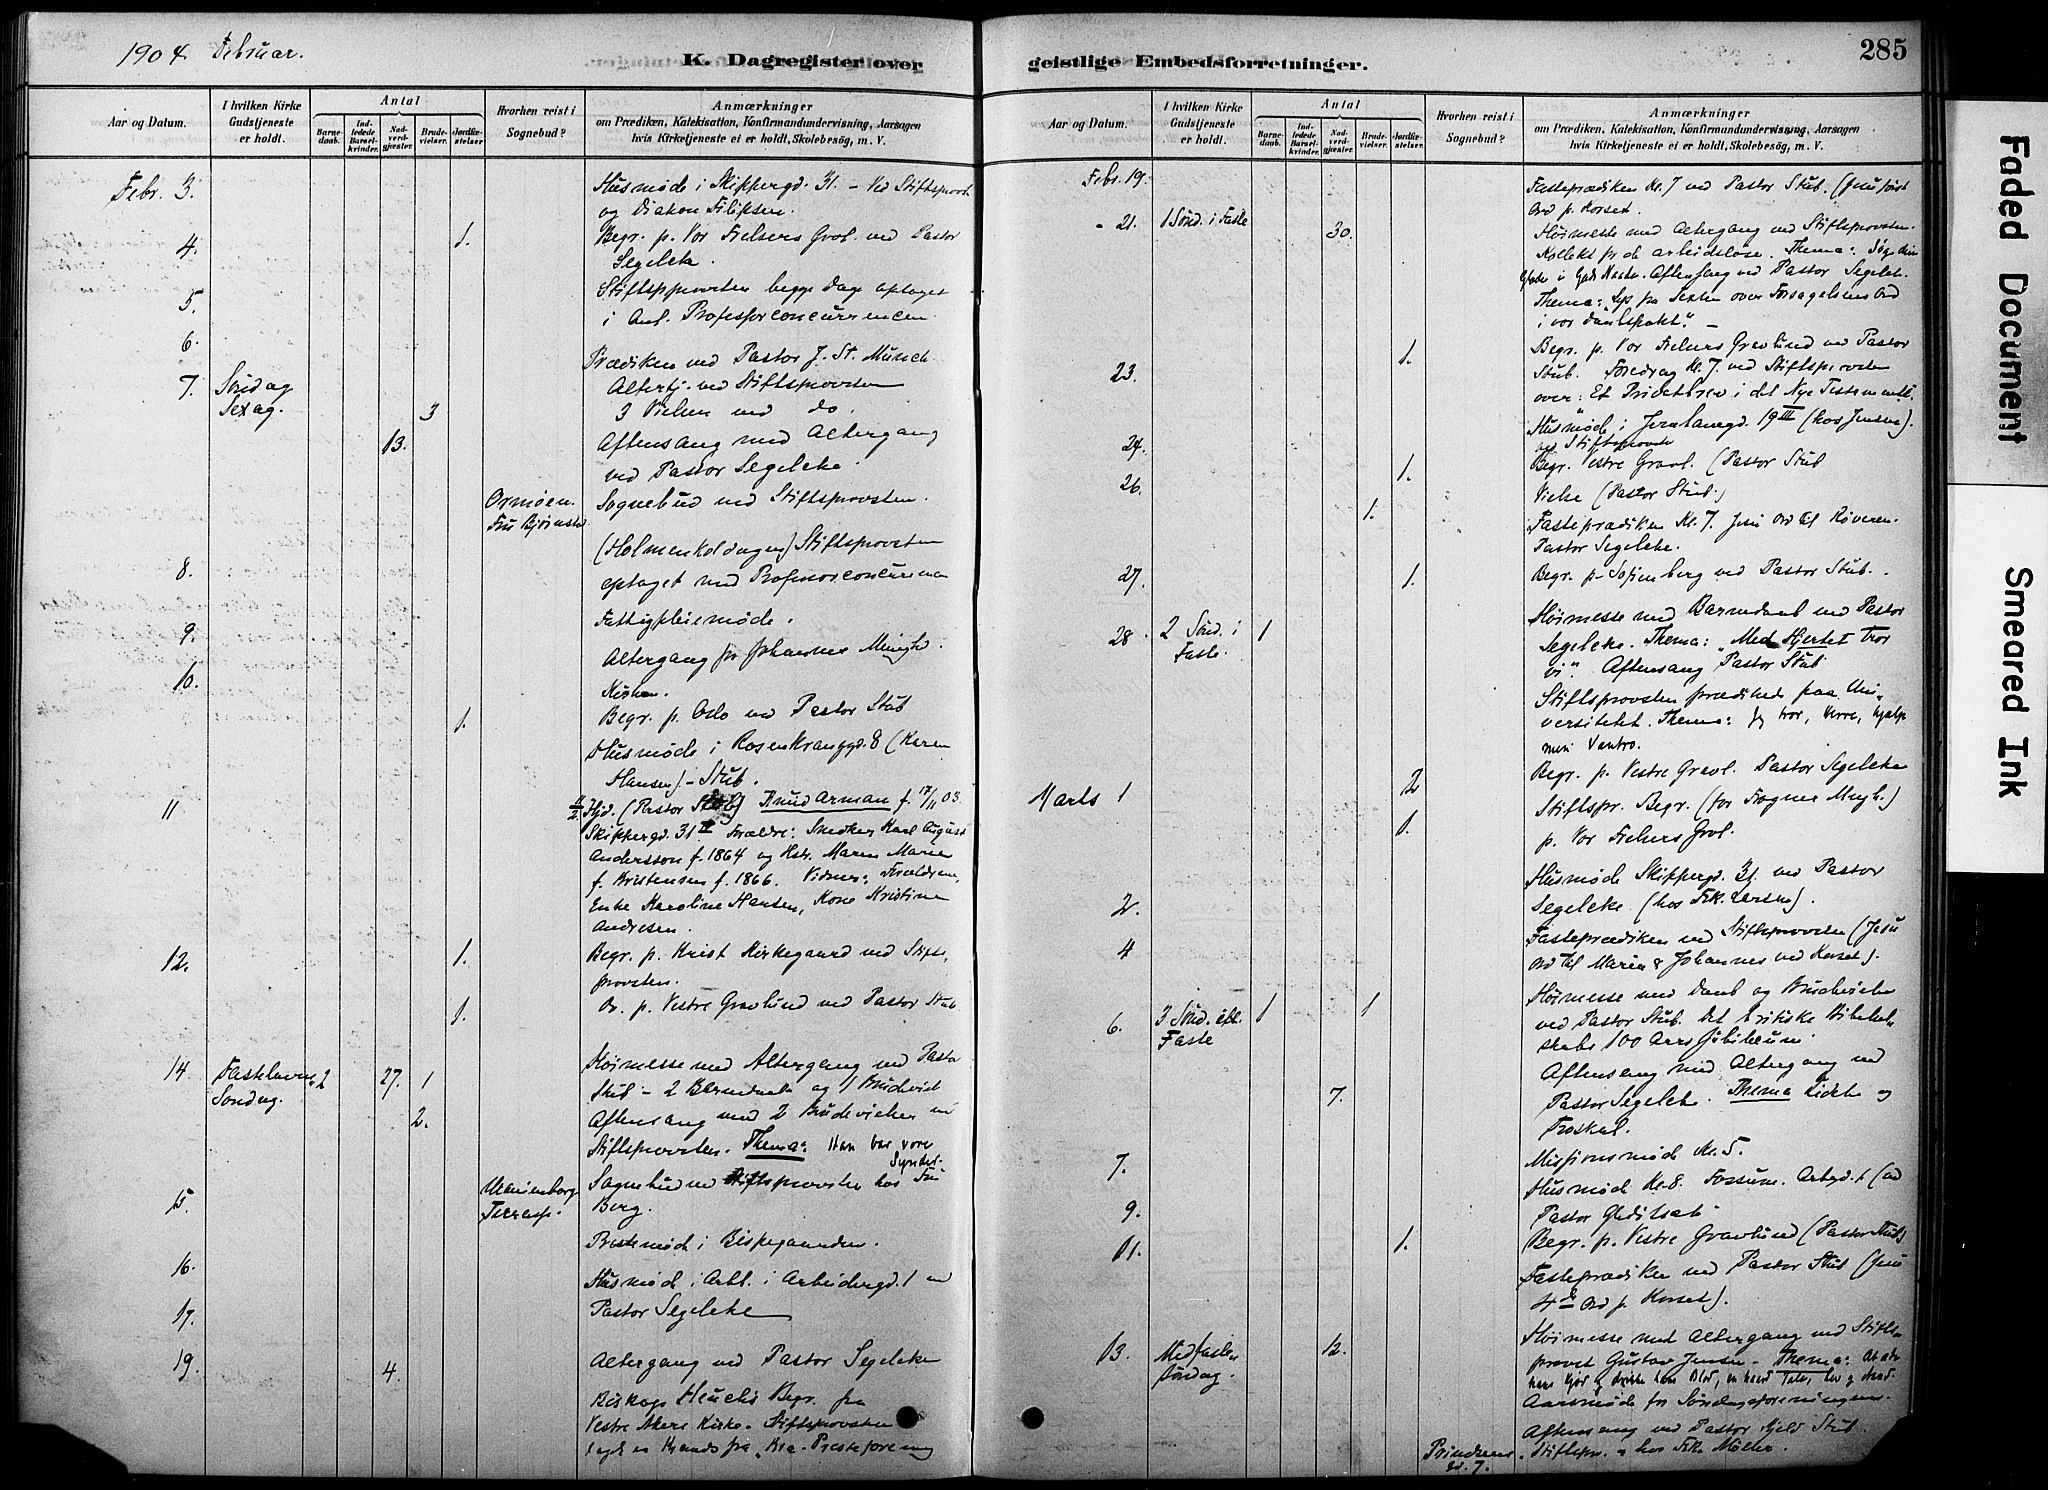 1904 Februar.
K. Dagregister over
Aar og Datum.
I hvilken Kirke Gudstjeneste er holdt.
Antal
Barnedaab.
Indledede Barselkvinder.
Nadverdgjæster.
Brudevielser.
Jordfæstelser
Hvorhen reist i Sognebud?
Anmærkninger
om Prædiken, Katekisation, Konfirmandundervisning, Aarsagen
hvis Kirketjeneste ei er holdt, Skolebesög, m. V.
Febr. 3. Husmøde i Skippergd. 31. - Ved Stiftsprovst
og Diakon Filipsen.
4. 1. Begr. p. Vor Frelsers Gravl. ved Pastor
Segelcke.
5. Stiftsprovsten begge Dage optaget
i Anl. Professorconcurrencen
6.
Prædiken ved Pastor J. St. Munch
7. Søndag Altertj. ved Stiftsprovsten
Sexag. 3 3 Vielser ved do.
13. Aftensang med Altergang
ved Pastor Segelcke.
Ormøen. Sognebud ved Stiftsprovsten.
Fru Bjørnstad
8. (Holmenkoldagen) Stiftsprovsten
optaget med Professorconcurrencen
Fattigpleiemøde.
9. Altergang for Johannes Menighd.
10. Kirken.
1. Begr. p. Oslo ved Pastor Stub
Husmøde i Rosenkrantzgd. 8 (Karen
Hansen) - Stub.
11 11/2 Hjd. (Pastor Stub) Knud Arman f. 17/11 03.
Skippergd. 31 II Forældre: Snedker Karl August
Andersson f. 1864 og Hstr. Maren Marie
f. Kristensen f. 1866. Vidner: Forældrene,
Enke Karoline Hansen, Kone Kristine
Andresen.
12. 1. Begr. p. Krist Kirkegaard ved Stifts-
provsten.
1. Do. p. Vestre Gravlund ved Pastor Stub
14 Fastelavns 2 27. 1 Høimesse med Altergang ved Pastor
Søndag. Stub - 2 Barnedaab og 1 Brudevielse
2. Aftensang med 2 Brudevielser ved
Stiftsprovsten. Thema: Han bar vore
Synder.
15. Marienborg Sognebud ved Stiftsprovsten hos Fru
Terrasse. Berg.
Prestemøde i Bispegaarden.
16. Husmøde i Arbl. i Arbeidergd. 1 ved
17. Pastor Segelcke
19. 4. Altergang ved Pastor Segelcke
Biskop Heuchs Begr. fra
Vestre Akers Kirke. Stiftsprovsten
lagde en Krands fra Kra. Presteforening
geistlige Embedsforretninger.
285
Aar og Datum.
I hvilken Kirke Gudstjeneste er holdt.
Antal
Barnedaab.
Indledede Barselkvinder.
Nadverdgjæster.
Brudevielser.
Jordfæstelser.
Hvorhen reist i Sognebud?
Anmærkninger
om Prædiken, Katekisation, Konfirmandundervisning, Aarsagen
hvis Kirketjeneste ei er holdt, Skolebesøg, m. V.
Febr. 19. Fasteprædiken Kl. 7 ved Pastor Stub. (Jesu først
Ord p. Korset.
- 21. 1 Sønd. i Faste 30. Høimesse med Altergang ved Stiftsprovsten.
Kollekt for de arbeidsløse. Thema:
Aftensang ved Pastor Segelcke.
Thema: Lys fra Texten over Forsagelsens Ord
i vor Daabspakt". -
1. Begr. p. Vor Frelsers Gravlund ved Pastor
23. Stub. Foredrag Kl. 7. ved Stiftsprovsten
over: Et Privatbrev i det Nye Testamente.
Husmøde i Jernbanegd. 19 III (hos Jensen).
24. ved Stiftsprovsten
26. 1. Begr. Vestre Gravl. (Pastor Stub
1. Vielse (Pastor Stub.)
Fasteprædiken Kl. 7. Jesu Ord til Røveren.
Pastor Segelcke.
27. 1. Begr. p. Sofienberg ved Pastor Stub.
28. 2 Sønd. i 1 Høimesse med Barnedaab ved Pastor
Faste. Segelcke. Thema: "Med Hjertet tror
vi". Aftensang Pastor Stub
Stiftsprovsten prædikede paa Uni-
versitetet. Thema: Jeg tror, Herre, hjælp
min Vantro.
2 Begr. p. Vestre Gravl. Pastor Segelcke
Marts 1 Stiftspr. Begr. (for Frogner Mngh.)
1. p. Vor Frelsers Gravl.
Husmøde Skippergd. 31. ved Pastor
2. Segelcke (hos Frk. Larsen).
Fasteprædiken ved Stiftsprovsten (Jesu
4 Ord til Maria & Johannes ved Korset).
6. 3 Sønd. i 1 1 Høimesse med Daab og Brudevielse
Faste ved Pastor Stub. Det britiske Bibelsel-
skabs 100 Aars Jubilæum.
Aftensang med Altergang ved
7. Pastor Segelcke. Thema
7. Missionsmøde Kl. 5.
Husmøde Kl. 8. Fossum. Arbgd. 1 (ved
9. Pastor Gleditsch.
11. 1. Begr. p. Vestre Gravlund (Pastor Stub)
Fasteprædiken ved Pastor Stub (Jesu
4de Ord p. Korset).
13. Midfaste 12. Høimesse med Altergang ved Stifts-
Søndag. provst Gustav Jensen - Thema: At æde
hans Kjød og drikke hans Blod, en haard Tale,
Aarsmøde for Søndagsforeningen.
Aftensang ved Pastor Kjeld Stub.
Prindsens- Stiftspr. hos Frk. Møller.
gd. 7.
Faded Document
Smeared Ink